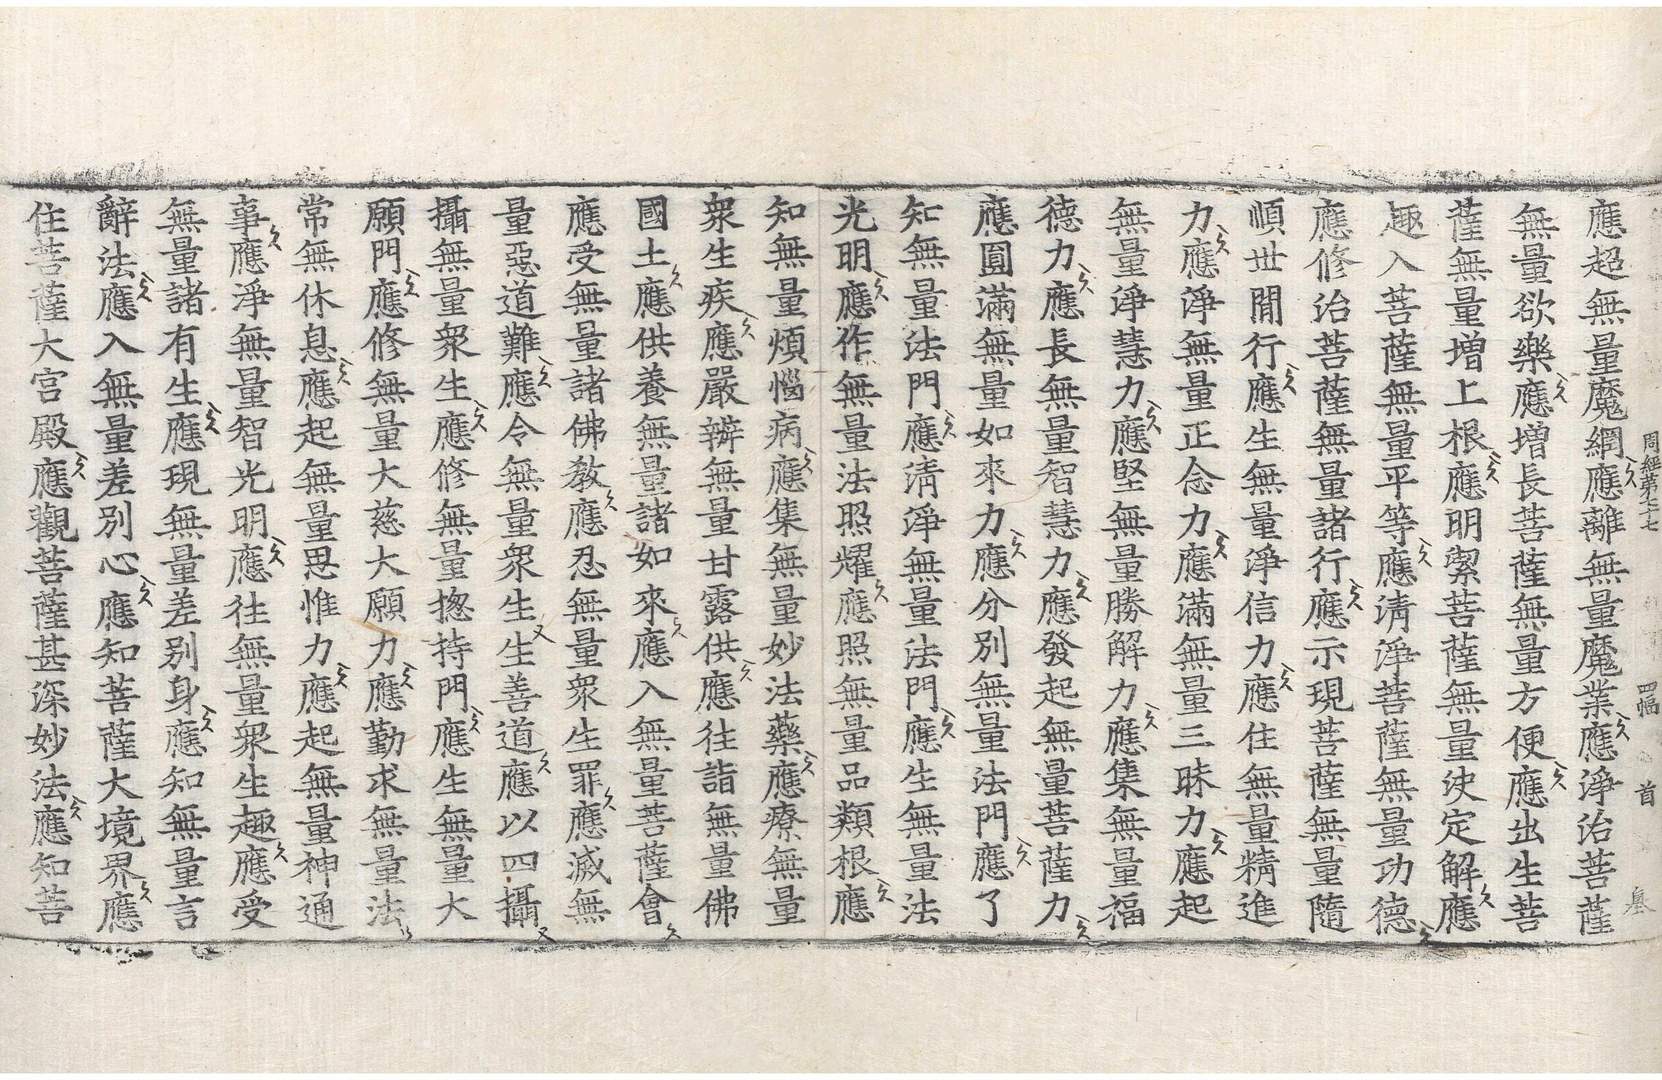 周經第七十七 四幅 首
應超無量魔網應離無量魔業應淨治菩薩
無量欲樂應增長菩薩無量方便應出生菩
薩無量增上根應明絜菩薩無量決定解應
趣入菩薩無量平等應清淨菩薩無量功德
應修治菩薩無量諸行應示現菩薩無量隨
順世閒行應生無量淨信力應住無量精進
力應淨無量正念力應滿無量三昧力應起
無量淨慧力應堅無量勝解力應集無量福
德力應長無量智慧力應發起無量菩薩力
應圓滿無量如來力應分別無量法門應了
知無量法門應清淨無量法門應生無量法
光明應作無量法照耀應照無量品類根應
知無量煩惱病應集無量妙法藥應療無量
衆生疾應嚴辦無量甘露供應往詣無量佛
國土應供養無量諸如來應入無量菩薩會
應受無量諸佛教應忍無量衆生罪應滅無
量惡道難應令無量衆生生善道應以四攝
攝無量衆生應修無量揔持門應生無量大
願門應修無量大慈大願力應勤求無量法
常無休息應起無量思惟力應起無量神通
事應淨無量智光明應往無量衆生趣應受
無量諸有生應現無量差別身應知無量言
辭法應入無量差別心應知菩薩大境界應
住菩薩大宮殿應觀菩薩甚深妙法應知菩